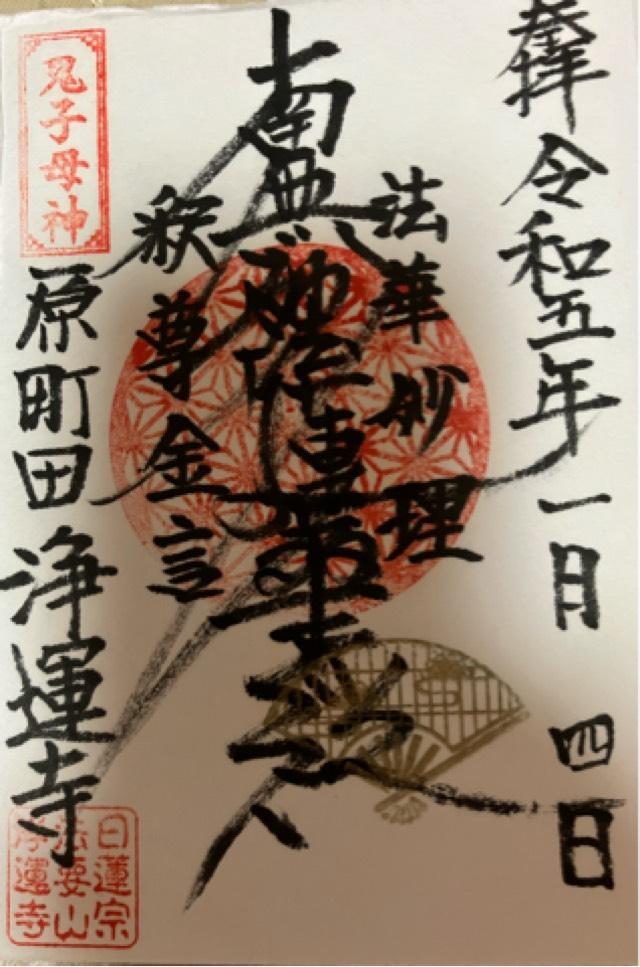 奉拝
令和五年一月四日
法華妙理
南無妙法蓮華経
釈尊金言
鬼子母神
原町田
浄運寺
日蓮宗
法要山
浄運寺